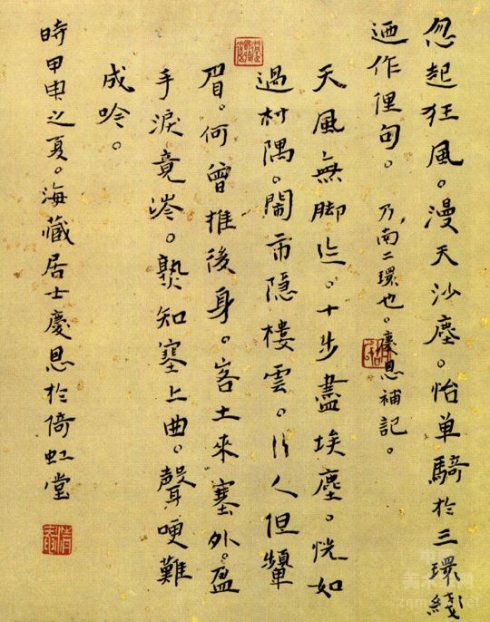 忽起狂風。漫天沙塵。怡单騎於三環綫
迺作俚句。乃南二環也。慶恩補記。
天風無脚迹。十步盡埃塵。恍如
過村隅。閙市隱樓雲。行人但顰
眉。何曾推後身。客土來塞外。盈
手淚竟涔。孰知塞上曲。聲哽難
成吟。
時甲申之夏。海藏居士慶恩於倚虹堂